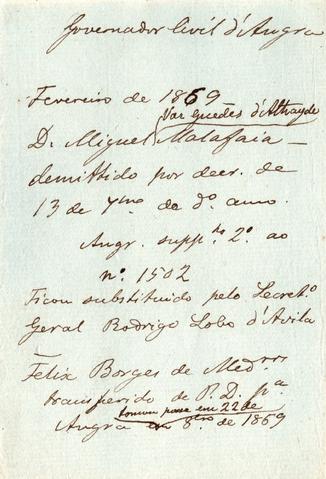 Governador Civil d'Angra
Fevereiro de 1869
Vaz Guedes d'Athayde
D. Miguel Malafaia —
demittido por decr. de
13 de 7mo de do anno.
Angr. suppto 2º ao
nº 1502
Ficou substituido pelo Secretº
Geral Rodrigo Lobo d'Avila
Felix Borges de Medros
transferido de P. D. pª
tomou posse em 22 de
Angra em 8bro de 1869